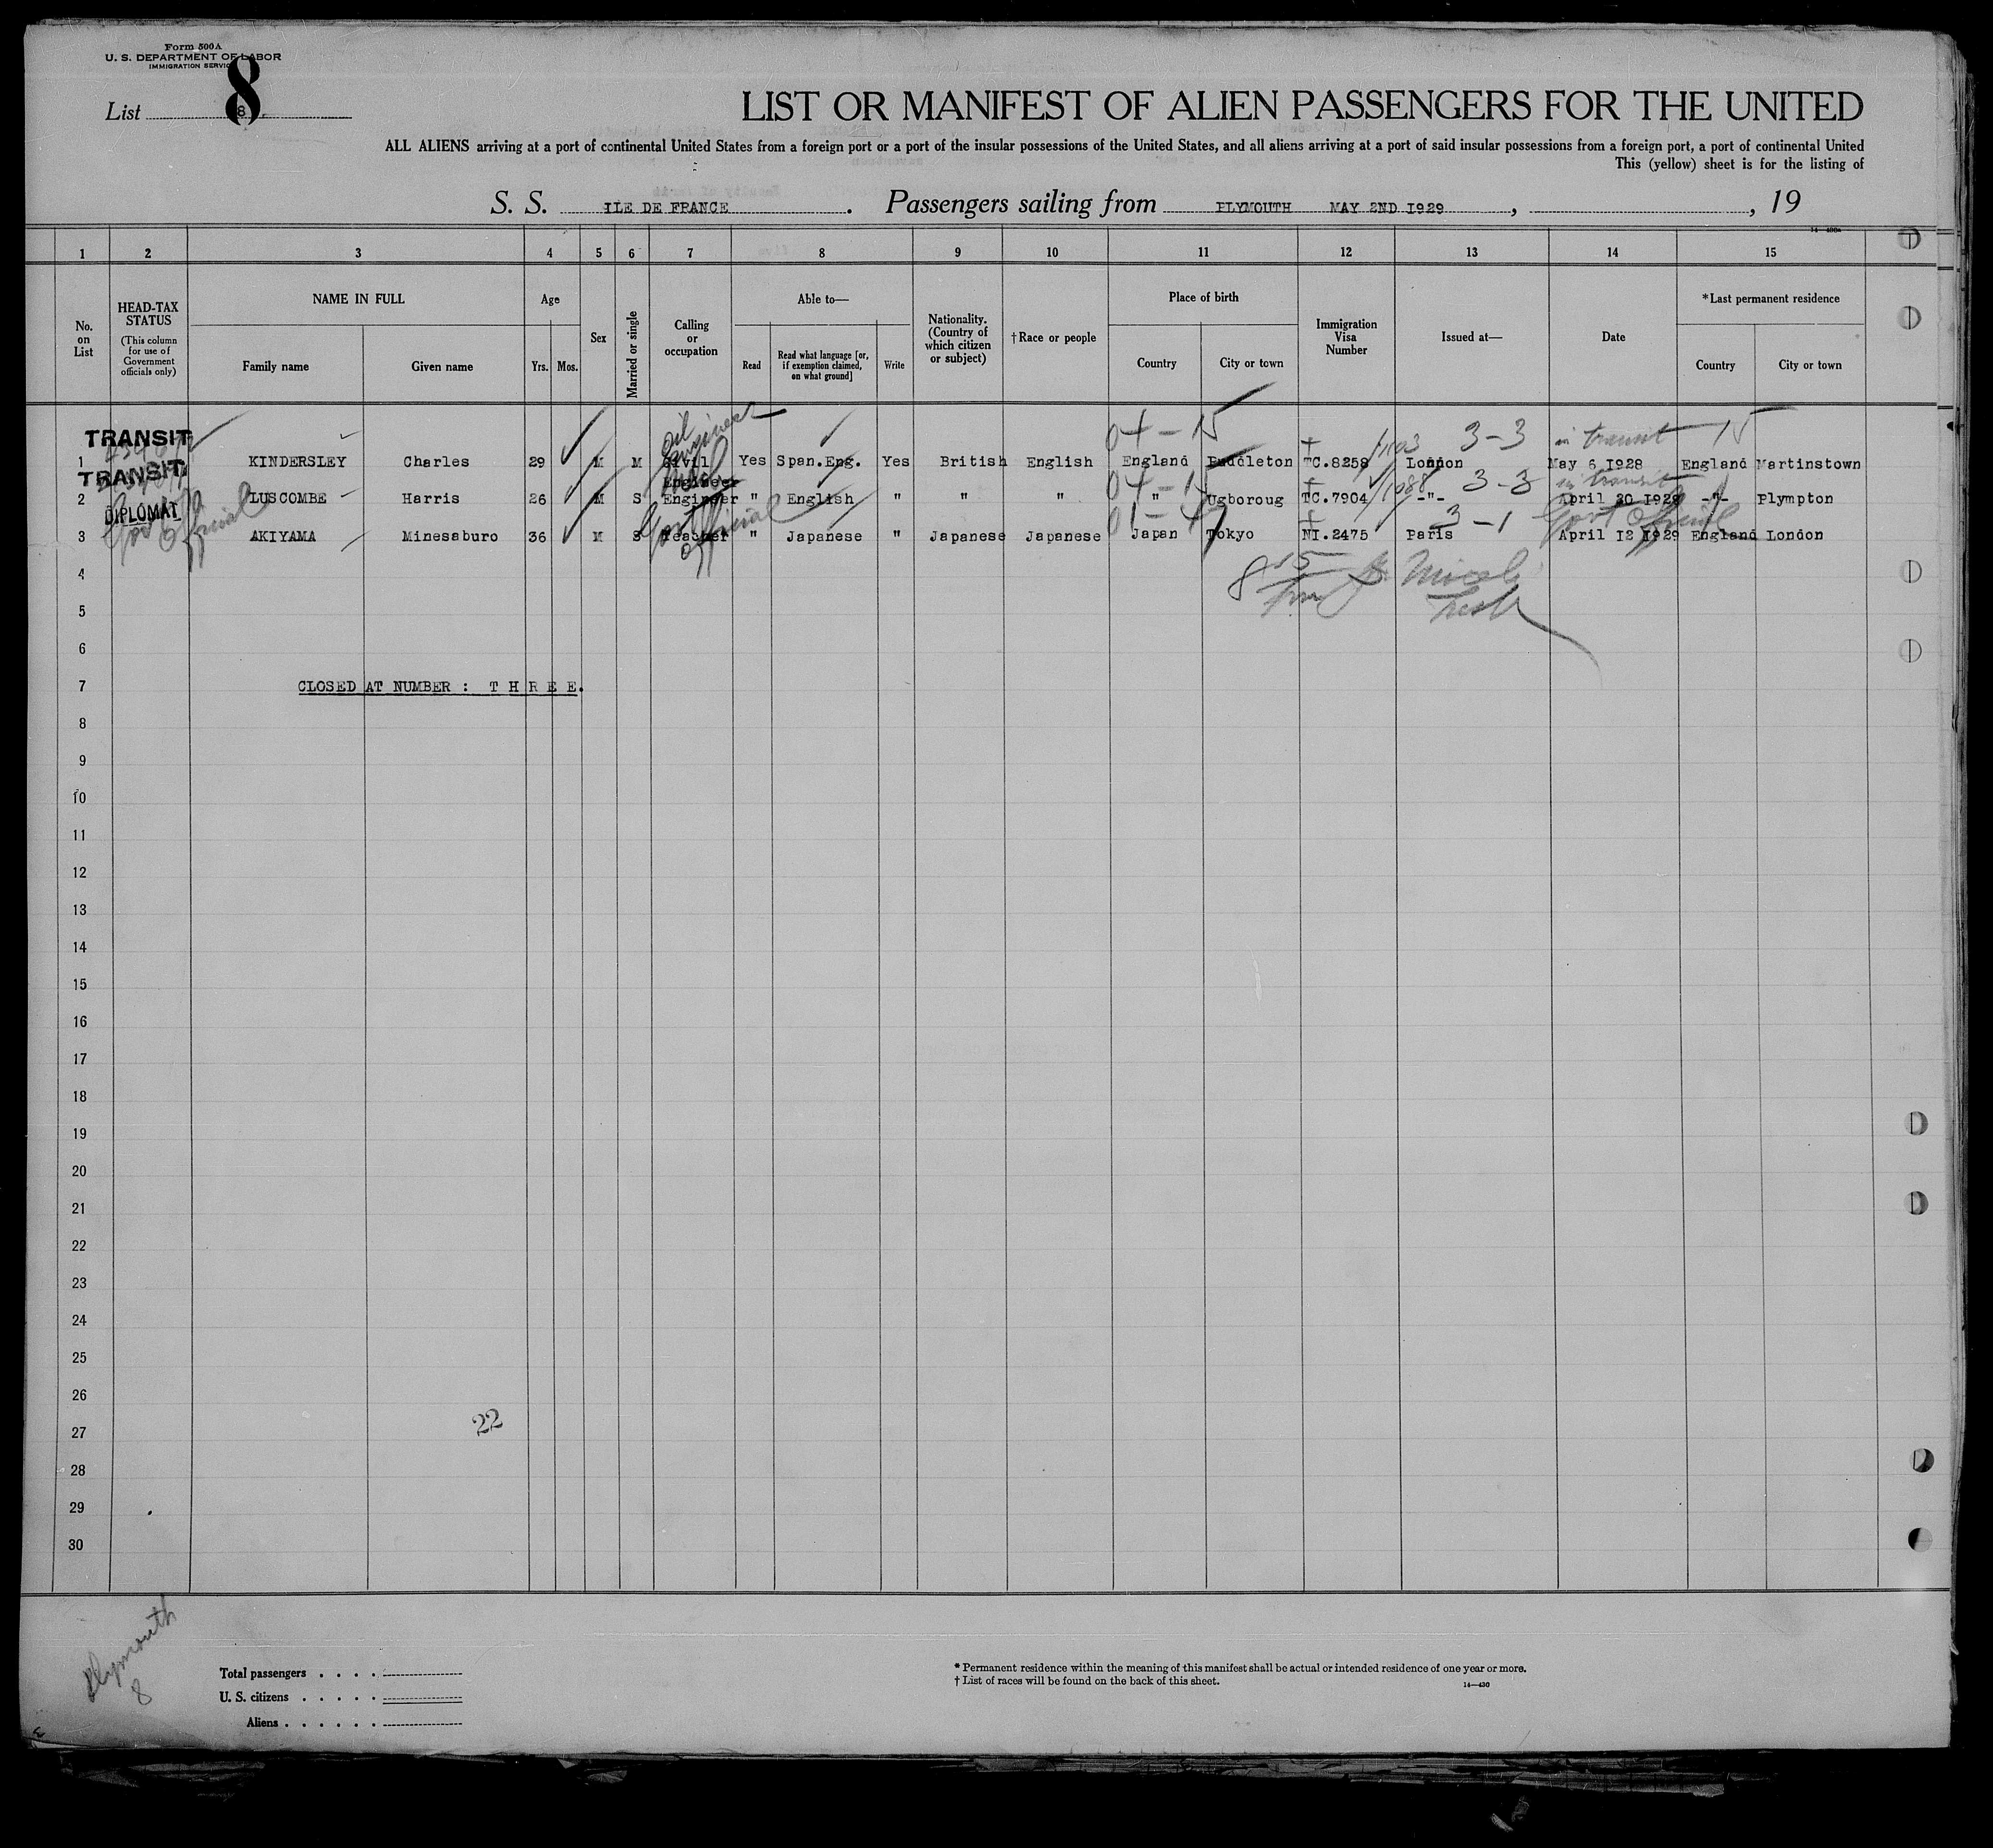 Form 500A
U. S. DEPARTMENT OF LABOR
IMMIGRATION SERVICE
8
List 8
LIST OR MANIFEST OF ALIEN PASSENGERS FOR THE UNITED
ALL ALIENS arriving at a port of continental United States from a foreign port or a port of the insular possessions of the United States, and all aliens arriving at a port of said insular possessions from a foreign port, a port of continental United
This (yellow) sheet is for the listing of
S. S. ILE DE FRANCE. Passengers sailing from PLYMOUTH MAY 2ND 1929, , 19
1 2 3 4 5 6 7 8 9 10 11 12 13 14 15
No. on List
HEAD-TAX STATUS (This column for use of Government officials only)
NAME IN FULL Family name Given name
Age Yrs. Mos.
Sex
Married or single
Calling or occupation
Able to— Read Read what language [or, if exemption claimed, on what ground] Write
Nationality. (Country of which citizen or subject)
†Race or people
Place of birth Country City or town
Immigration Visa Number
Issued at—
Date
*Last permanent residence Country City or town
oil Engineer 04-15 1103 3-3 in transit 15
TRANSIT
1 KINDERSLEY Charles 29 M M Civil Engineer Yes Span.Eng. Yes British English England Puddleton TC.8258 London May 6 1928 England Martinstown
TRANSIT
04-15 1088 3-3 in transit
2 LUSCOMBE Harris 26 M S Engineer " English " " " " Ugboroug TC.7904 -"- April 20 1929 -"- Plympton
DIPLOMAT
Govt Official Govt Official 01-4 3-1 Govt Official
3 AKIYAMA Minesaburo 36 M S Teacher " Japanese " Japanese Japanese Japan Tokyo NI.2475 Paris April 12 1929 England London
4
5
6
7 CLOSED AT NUMBER : T H R E E.
8
9
10
11
12
13
14
15
16
17
18
19
20
21
22
23
24
25
26
22
27
28
29
30
Plymouth
8
Total passengers . . . .
U. S. citizens . . . . .
Aliens . . . . . .
* Permanent residence within the meaning of this manifest shall be actual or intended residence of one year or more.
† List of races will be found on the back of this sheet.
14—430